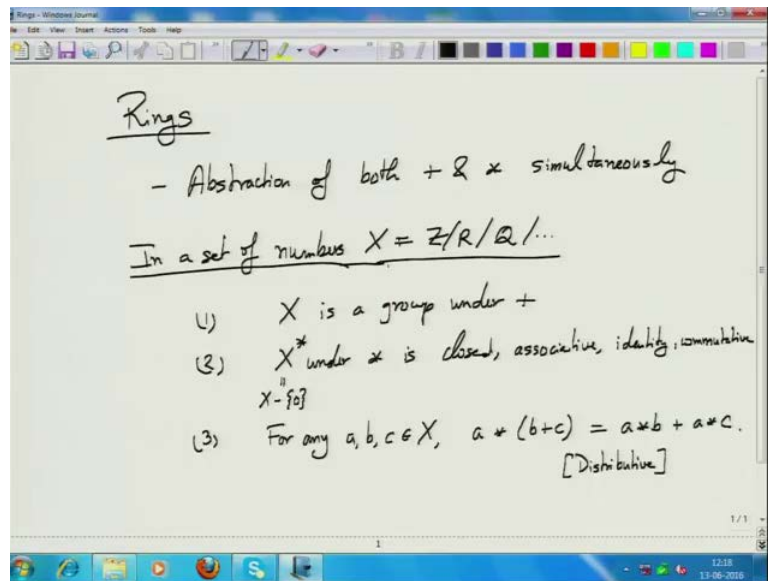 Rings - Windows Journal
File Edit View Insert Actions Tools Help
Rings
- Abstraction of both + & * simultaneously
In a set of numbers X = Z/R/Q/...
(1) X is a group under +
(2) X* under * is closed, associative, identity, commutative
"
X-{0}
(3) For any a, b, c ∈ X, a * (b+c) = a*b + a*c.
[Distributive]
1/1
1
12:18
13-06-2016